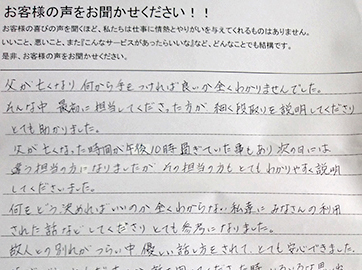 お客様の声をお聞かせください！！
お客様の喜びの声を聞くほど、私たちは仕事に情熱とやりがいを与えてくれるものはありません。
いいこと、悪いこと、また『こんなサービスがあったらいいな』など、どんなことでも結構です。
是非、お客様の声をお聞かせください。
父が亡くなり何から手をつければ良いか全くわかりませんでした。
そんな中 最初に担当してくださった方が 細く段取りを説明してくださり
とても助かりました。
父が亡くなった時間が午後10時過ぎていた事もあり 次の日には
違う担当の方になりましたが その担当の方もとてもわかりやすく説明
してくださいました。
何をどう決めればいいのか全くわからない私達に みなさんの利用
された話などしてくださり とても参考になりました。
故人との別れがつらい中 優しい話し方をされて、とても安心できました。